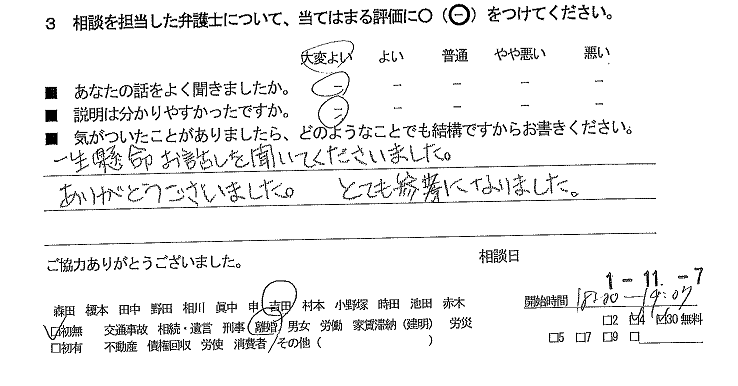 3 相談を担当した弁護士について、当てはまる評価に○（㊀）をつけてください。
大変よい よい 普通 やや悪い 悪い
■ あなたの話をよく聞きましたか。 － － － － －
■ 説明は分かりやすかったですか。 － － － － －
■ 気がついたことがありましたら、どのようなことでも結構ですからお書きください。
一生懸命お話しを聞いてくださいました。
ありがとうございました。 とても参考になりました。
ご協力ありがとうございました。 相談日
1－11.－7
森田 榎本 田中 野田 相川 眞中 申 吉田 村本 小野塚 時田 池田 赤木 開始時間 18:20－19:07
☑初無 交通事故 相続・遺言 刑事 離婚 男女 労働 家賃滞納（建明） 労災 □2 ☑4 ☑30無料
□初有 不動産 債権回収 労使 消費者 その他（ ） □5 □7 □9 □